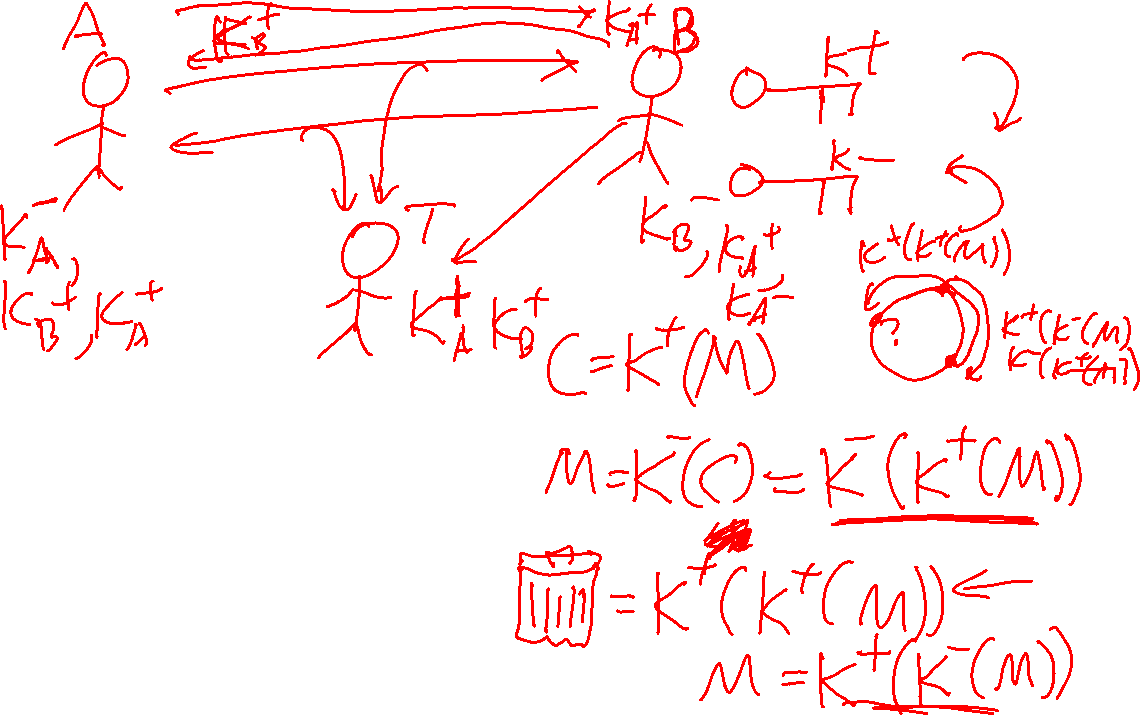 A
K_B^+
K_A^+
B
K^+
K^-
T
K_A^-,
K_B^+, K_A^+
K_A^+ K_B^+
K_B^-, K_A^+,
K_A^-
K^+(K^+(M))
?
K^+(K^-(M)
K^-(K^+(M))
C = K^+(M)
M = K^-(C) = K^-(K^+(M))
= K^+(K^+(M))
M = K^+(K^-(M))